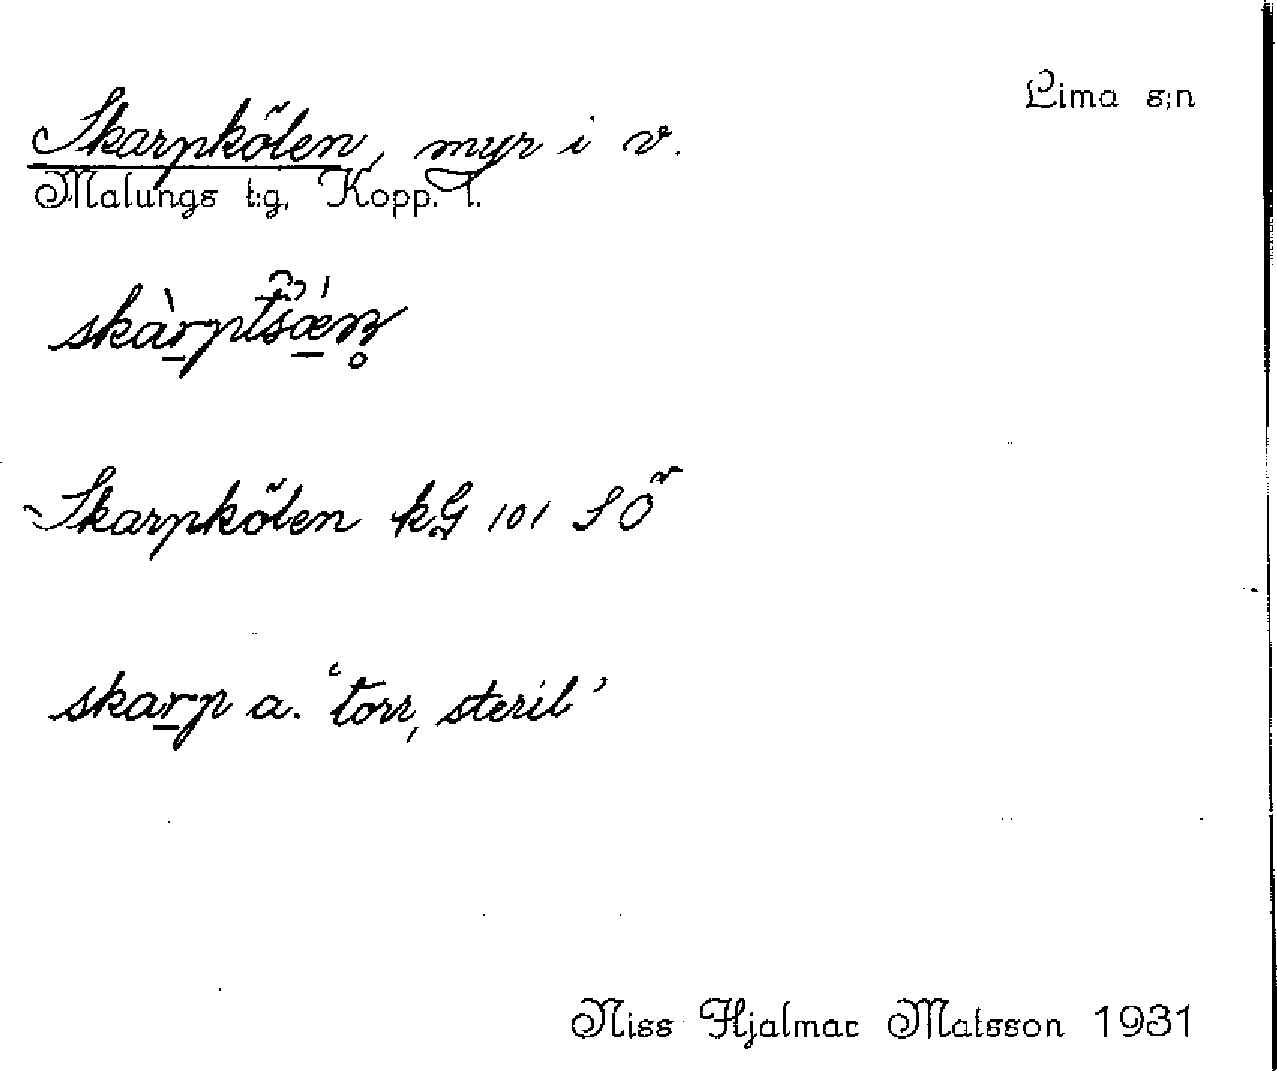 Lima s:n
Skarpkölen, myr i v.
Malungs t:g, Kopp. l.
Skarpkölen kG 101 SÖ
skarp a. 'torr, steril'
Niss Hjalmar Matsson 1931